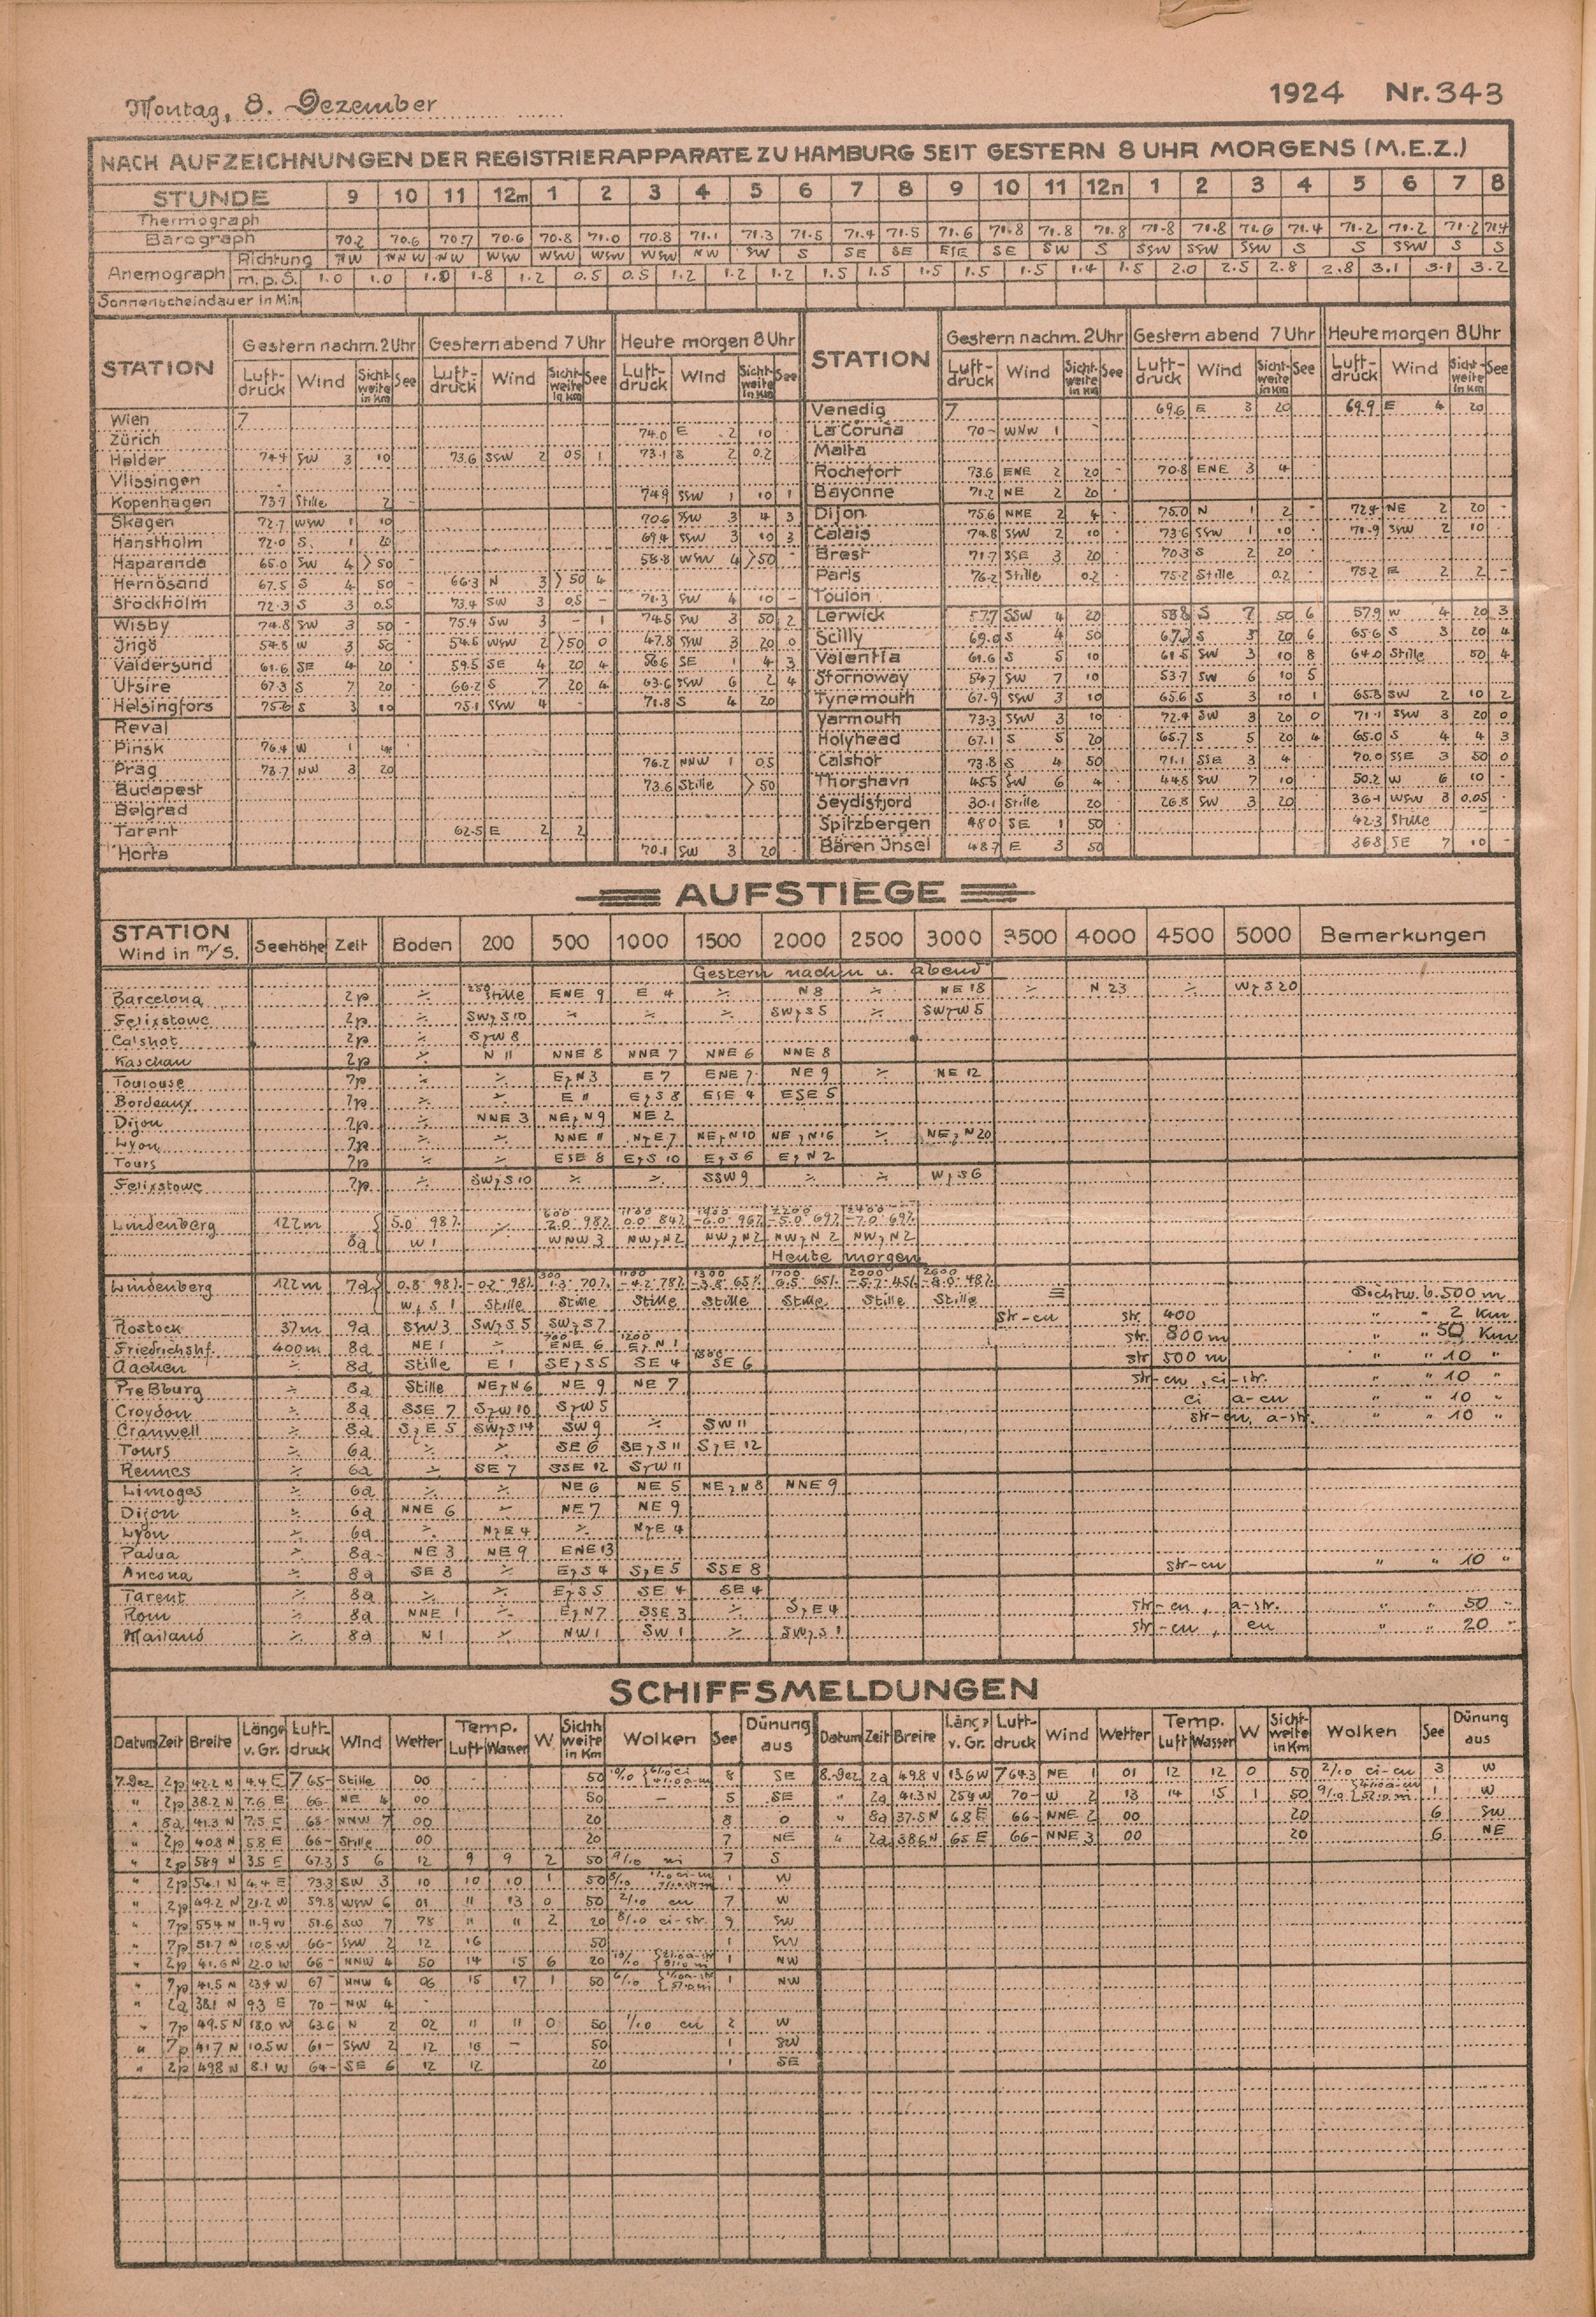 Montag, 8. Dezember
1924 Nr. 343
NACH AUFZEICHNUNGEN DER REGISTRIERAPPARATE ZU HAMBURG SEIT GESTERN 8 UHR MORGENS (M.E.Z.)
STUNDE 9 10 11 12m 1 2 3 4 5 6 7 8 9 10 11 12n 1 2 3 4 5 6 7 8
Thermograph
Barograph 70.2 70.6 70.7 70.6 70.8 71.0 70.8 71.1 71.3 71.5 71.4 71.5 71.6 71.8 71.8 71.8 71.8 71.8 71.6 71.4 71.2 71.2 71.2 71.4
Anemograph Richtung NW NNW NW WSW WSW WSW WSW NW SW S SE SE ESE SE SW S SSW SSW SSW S S SSW S S
m.p.S. 1.0 1.0 1.0 1.8 1.2 0.5 0.5 1.2 1.2 1.2 1.5 1.5 1.5 1.5 1.5 1.4 1.5 2.0 2.5 2.8 2.8 3.1 3.1 3.2
Sonnenscheindauer in Min.
STATION Gestern nachm. 2 Uhr Gestern abend 7 Uhr Heute morgen 8 Uhr STATION Gestern nachm. 2 Uhr Gestern abend 7 Uhr Heute morgen 8 Uhr
Luft-druck Wind Sicht-weite in Km See Luft-druck Wind Sicht-weite in Km See Luft-druck Wind Sicht-weite in Km See Luft-druck Wind Sicht-weite in Km See Luft-druck Wind Sicht-weite in Km See Luft-druck Wind Sicht-weite in Km See
Wien 7 Venedig 7 69.6 E 3 20 69.9 E 4 20
Zürich 74.0 E 2 10 La Coruña 70- WNW 1
Helder 74.4 SW 3 10 73.6 SSW 2 05 1 73.1 S 2 0.2 Malta
Vlissingen Rochefort 73.6 ENE 2 20 70.8 ENE 3 4
Kopenhagen 73.7 Stille 2 - 74.9 SSW 1 10 1 Bayonne 71.2 NE 2 20
Skagen 72.7 WSW 1 10 70.6 SSW 3 4 3 Dijon 75.6 NNE 2 4 75.0 N 1 2 72.4 NE 2 20 -
Hanstholm 72.0 S 1 20 69.4 SSW 3 10 3 Calais 74.8 SSW 2 10 73.6 SSW 1 10 71.9 SSW 2 10
Haparanda 65.0 SW 4 >50 58.8 WSW 4 >50 - Brest 71.7 SSE 3 20 70.3 S 2 20
Hernösand 67.5 S 4 50 - 66.3 N 3 >50 4 Paris 76.2 Stille 0.2 75.2 Stille 0.2 75.2 E 2 2 -
Stockholm 72.3 S 3 0.5 73.4 SW 3 0.5 - 71.3 SW 4 10 - Toulon
Wisby 74.8 SW 3 50 - 75.4 SW 3 - 1 74.5 SW 3 50 2 Lerwick 57.7 SSW 4 20 58.8 S 7 50 6 57.9 W 4 20 3
Jngö 54.8 W 3 50 54.6 WSW 2 >50 0 47.8 SSW 3 20 0 Scilly 69.0 S 4 50 S 3 20 6 65.6 S 3 20 4
Valdersund 61.6 SE 4 20 59.5 SE 4 20 4 56.6 SE 1 4 3 Valentia 61.6 S 5 10 61.5 SW 3 10 8 64.0 Stille 50 4
Utsire 67.3 S 7 20 66.2 S 7 20 4 63.6 SSW 6 2 4 Stornoway 54.7 SW 7 10 53.7 SW 6 10 5
Helsingfors 75.6 S 3 10 75.1 SSW 4 - 71.8 S 4 20 Tynemouth 67.9 SSW 3 10 65.6 S 3 10 1 65.8 SW 2 10 2
Reval Yarmouth 73.3 SSW 3 10 72.4 SW 3 20 0 71.1 SSW 3 20 0
Pinsk 76.4 W 1 Holyhead 67.1 S 5 20 65.7 S 5 20 4 65.0 S 4 4 3
Prag 78.7 NW 3 20 76.2 NNW 1 0.5 Calshot 73.8 S 4 50 71.1 SSE 3 4 70.0 SSE 3 50 0
Budapest 73.6 Stille >50 Thorshavn 45.5 SW 6 4 44.8 SW 7 10 50.2 W 6 10 -
Belgrad Seydisfjord 30.1 Stille 20 26.8 SW 3 20 36.1 WSW 3 0.05
Tarent 62.5 E 2 2 Spitzbergen 48.0 SE 1 50 42.3 Stille
Horta 70.1 SW 3 20 Bären Jnsel 48.7 E 3 50 36.8 SE 7 10 -
AUFSTIEGE
STATION Wind in m/S. Seehöhe Zeit Boden 200 500 1000 1500 2000 2500 3000 3500 4000 4500 5000 Bemerkungen
Gestern nachm u. abend
Barcelona 2p ÷ 250 Stille ENE 9 E 4 ÷ N 8 ÷ NE 18 ÷ N 23 ÷ WzS 20
Felixstowe 2p ÷ SWzS 10 ÷ ÷ ÷ SWzS 5 ÷ SWzW 5
Calshot 2p ÷ SzW 8
Kaschau 2p ÷ N 11 NNE 8 NNE 7 NNE 6 NNE 8
Toulouse 7p ÷ ÷ EzN 3 E 7 ENE 7 NE 9 ÷ NE 12
Bordeaux 7p ÷ ÷ E 11 EzS 8 ESE 4 ESE 5
Dijon 7p ÷ NNE 3 NEzN 9 NE 2
Lyon 7p ÷ ÷ NNE 11 NzE 7 NEzN 10 NEzN 16 ÷ NEzN 20
Tours 7p ÷ ÷ ESE 8 EzS 10 EzS 6 EzN 2
Felixstowe 7p ÷ SWzS 10 ÷ ÷ SSW 9 ÷ ÷ WzS 6
600 1100 1400 2200 2400
Lindenberg 122m 5.0 98% ÷ 2.0 98% 0.0 84% -6.0 96% -5.0 69% -7.0 69%
8a W 1 WNW 3 NWzN 2 NWzN 2 NWzN 2 NWzN 2
Heute morgen
300 1100 1300 1700 2000 2600
Lindenberg 122m 7a 0.8 98% -0.2 98% 1.3 70% -4.2 78% -3.8 65% 65% -5.7 45% -8.0 48% Sichtw. 6.500 m
WzS 1 Stille Stille Stille Stille Stille Stille Stille ≡
Rostock 37m 9a SSW 3 SWzS 5 SWzS 7 str-cu str. 400 " " 2 Km
Friedrichshf. 400m 8a NE 1 ÷ ENE 6 1200 EzN 1 str. 800 m " " 50 Km
Aachen ÷ 8a Stille E 1 SEzS 5 SE 4 SE 6 str 500 m " " 10 "
Preßburg ÷ 8a Stille NEzN 6 NE 9 NE 7 str-cu, ci-str. " " 10 "
Croydon ÷ 8a SSE 7 SzW 10 SzW 5 ci a-cu " " 10 "
Cranwell ÷ 8a SzE 5 SWzS 14 SW 9 ÷ SW 11 str-cu, a-str. " " 10 "
Tours ÷ 6a ÷ ÷ SE 6 SEzS 11 SzE 12
Rennes ÷ 6a ÷ SE 7 SSE 12 SzW 11
Limoges ÷ 6a ÷ ÷ NE 6 NE 5 NEzN 8 NNE 9
Dijon ÷ 6a NNE 6 ÷ NE 7 NE 9
Lyon ÷ 6a ÷ NzE 4 ÷ NzE 4
Padua ÷ 8a NE 3 NE 9 ENE 13
Ancona ÷ 8a SE 3 ÷ EzS 4 SzE 5 SSE 8 str-cu " " 10 "
Tarent ÷ 8a ÷ ÷ EzS 5 SE 4 SE 4
Rom ÷ 8a NNE 1 ÷ EzN 7 SSE 3 ÷ SzE 4 str-cu, a-str. " " 50 "
Mailand ÷ 8a N 1 ÷ NW 1 SW 1 ÷ SWzS 1 str-cu, cu " " 20 "
SCHIFFSMELDUNGEN
Datum Zeit Breite Länge v. Gr. Luft-druck Wind Wetter Temp. Luft Wasser W Sicht-weite in Km Wolken See Dünung aus Datum Zeit Breite Länge v. Gr. Luft-druck Wind Wetter Temp. Luft Wasser W Sicht-weite in Km Wolken See Dünung aus
7. Dez 2p 42.2 N 4.4 E 765- Stille 00 50 10/10 8 SE 8. Dez 2a 49.8 N 13.6 W 764.3 NE 1 01 12 12 0 50 2/10 ci-cu 3 W
" 2p 38.2 N 7.6 E 66- NE 4 00 50 - 5 SE " 2a 41.3 N 25.9 W 70- W 2 13 14 15 1 50 9/10 1 W
" 8a 41.3 N 7.5 E 68- NNW 7 00 20 8 0 " 8a 37.5 N 6.8 E 66- NNE 2 00 20 6 SW
" 2p 40.8 N 5.8 E 66- Stille 00 20 7 NE " 2a 38.6 N 6.5 E 66- NNE 3 00 20 6 NE
" 2p 58.9 N 3.5 E 67.3 S 6 12 9 9 2 50 9/10 ni 7 S
" 2p 54.1 N 4.4 E 73.3 SW 3 10 10 10 1 50 1 W
" 2p 49.2 N 21.2 W 59.8 WSW 6 01 11 13 0 50 2/10 cu 7 W
" 7p 55.4 N 11.9 W 51.6 SW 7 78 11 11 2 20 8/10 ci-str. 9 SW
" 7p 51.7 N 10.5 W 66- SSW 2 12 16 50 1 SW
" 2p 41.6 N 22.0 W 66- NNW 4 50 14 15 6 20 10/10 1 NW
" 7p 41.5 N 23.4 W 67 NNW 4 06 15 17 1 50 6/10 1 NW
" 2a 38.1 N 9.3 E 70- NW 4
" 7p 49.5 N 18.0 W 63.6 N 2 02 11 11 0 50 1/10 cu 2 W
" 7p 41.7 N 10.5 W 61- SSW 2 12 16 - 50 1 SW
" 2p 49.8 N 8.1 W 64- SE 6 12 12 20 1 SE